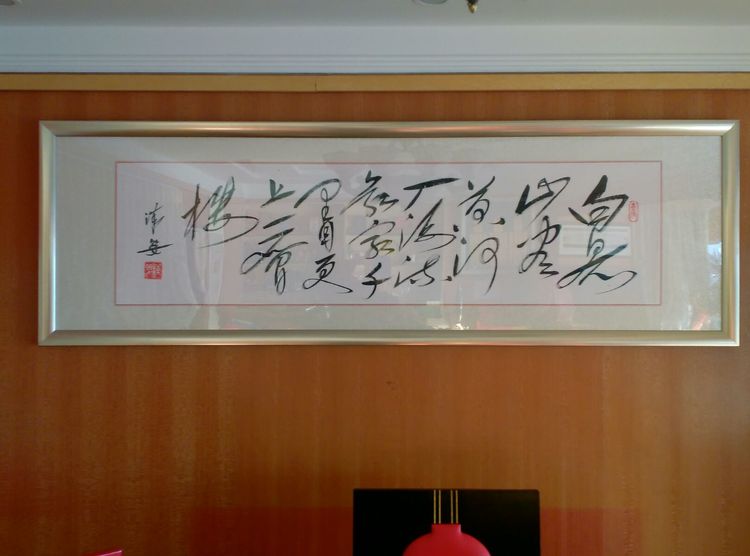 白日依
山盡
黄河
入海流
欲窮千
里目更
上一層
樓